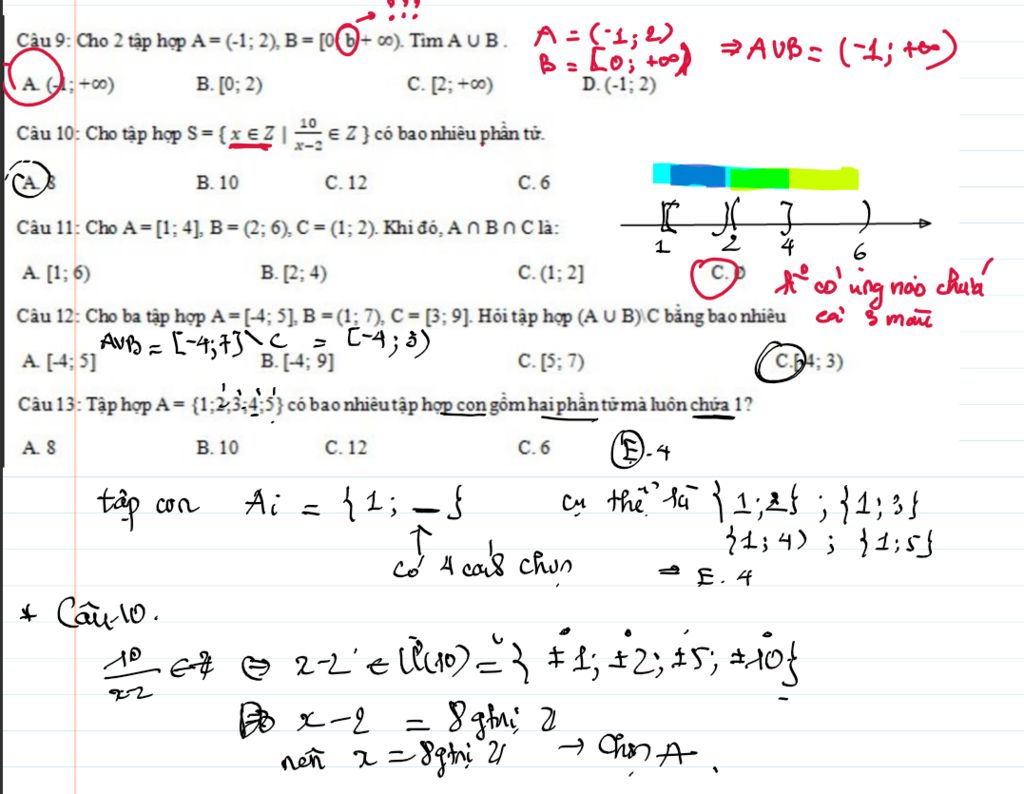 !!!
Câu 9: Cho 2 tập hợp A = (-1; 2), B = [0 b + ∞). Tìm A ∪ B .
A = (-1; 2)
B = [0; +∞)
⇒ A∪B = (-1; +∞)
A. (-1; +∞) B. [0; 2) C. [2; +∞) D. (-1; 2)
Câu 10: Cho tập hợp S = { x ∈ Z | 10/(x-2) ∈ Z } có bao nhiêu phần tử.
A. 8 B. 10 C. 12 C. 6
Câu 11: Cho A = [1; 4], B = (2; 6), C = (1; 2). Khi đó, A ∩ B ∩ C là:
1 2 4 6
A. [1; 6) B. [2; 4) C. (1; 2] C.
có vùng nào chứa
cả 3 màu
Câu 12: Cho ba tập hợp A = [-4; 5], B = (1; 7), C = [3; 9]. Hỏi tập hợp (A ∪ B)\C bằng bao nhiêu
A∪B = [-4; 7] \ C = [-4; 3)
A. [-4; 5] B. [-4; 9] C. [5; 7) C. [-4; 3)
Câu 13: Tập hợp A = {1;2;3;4;5} có bao nhiêu tập hợp con gồm hai phần tử mà luôn chứa 1?
A. 8 B. 10 C. 12 C. 6 E. 4
tập con Ai = {1; _} cụ thể là {1; 2} ; {1; 3}
{1; 4) ; {1; 5}
có 4 cách chọn
⇒ E. 4
* Câu 10.
10/(x-2) ∈ Z ⇔ x-2 ∈ Ư(10) = { ±1; ±2; ±5; ±10}
Do x - 2 = 8 gtrị
nên x = 8 gtrị → Chọn A.